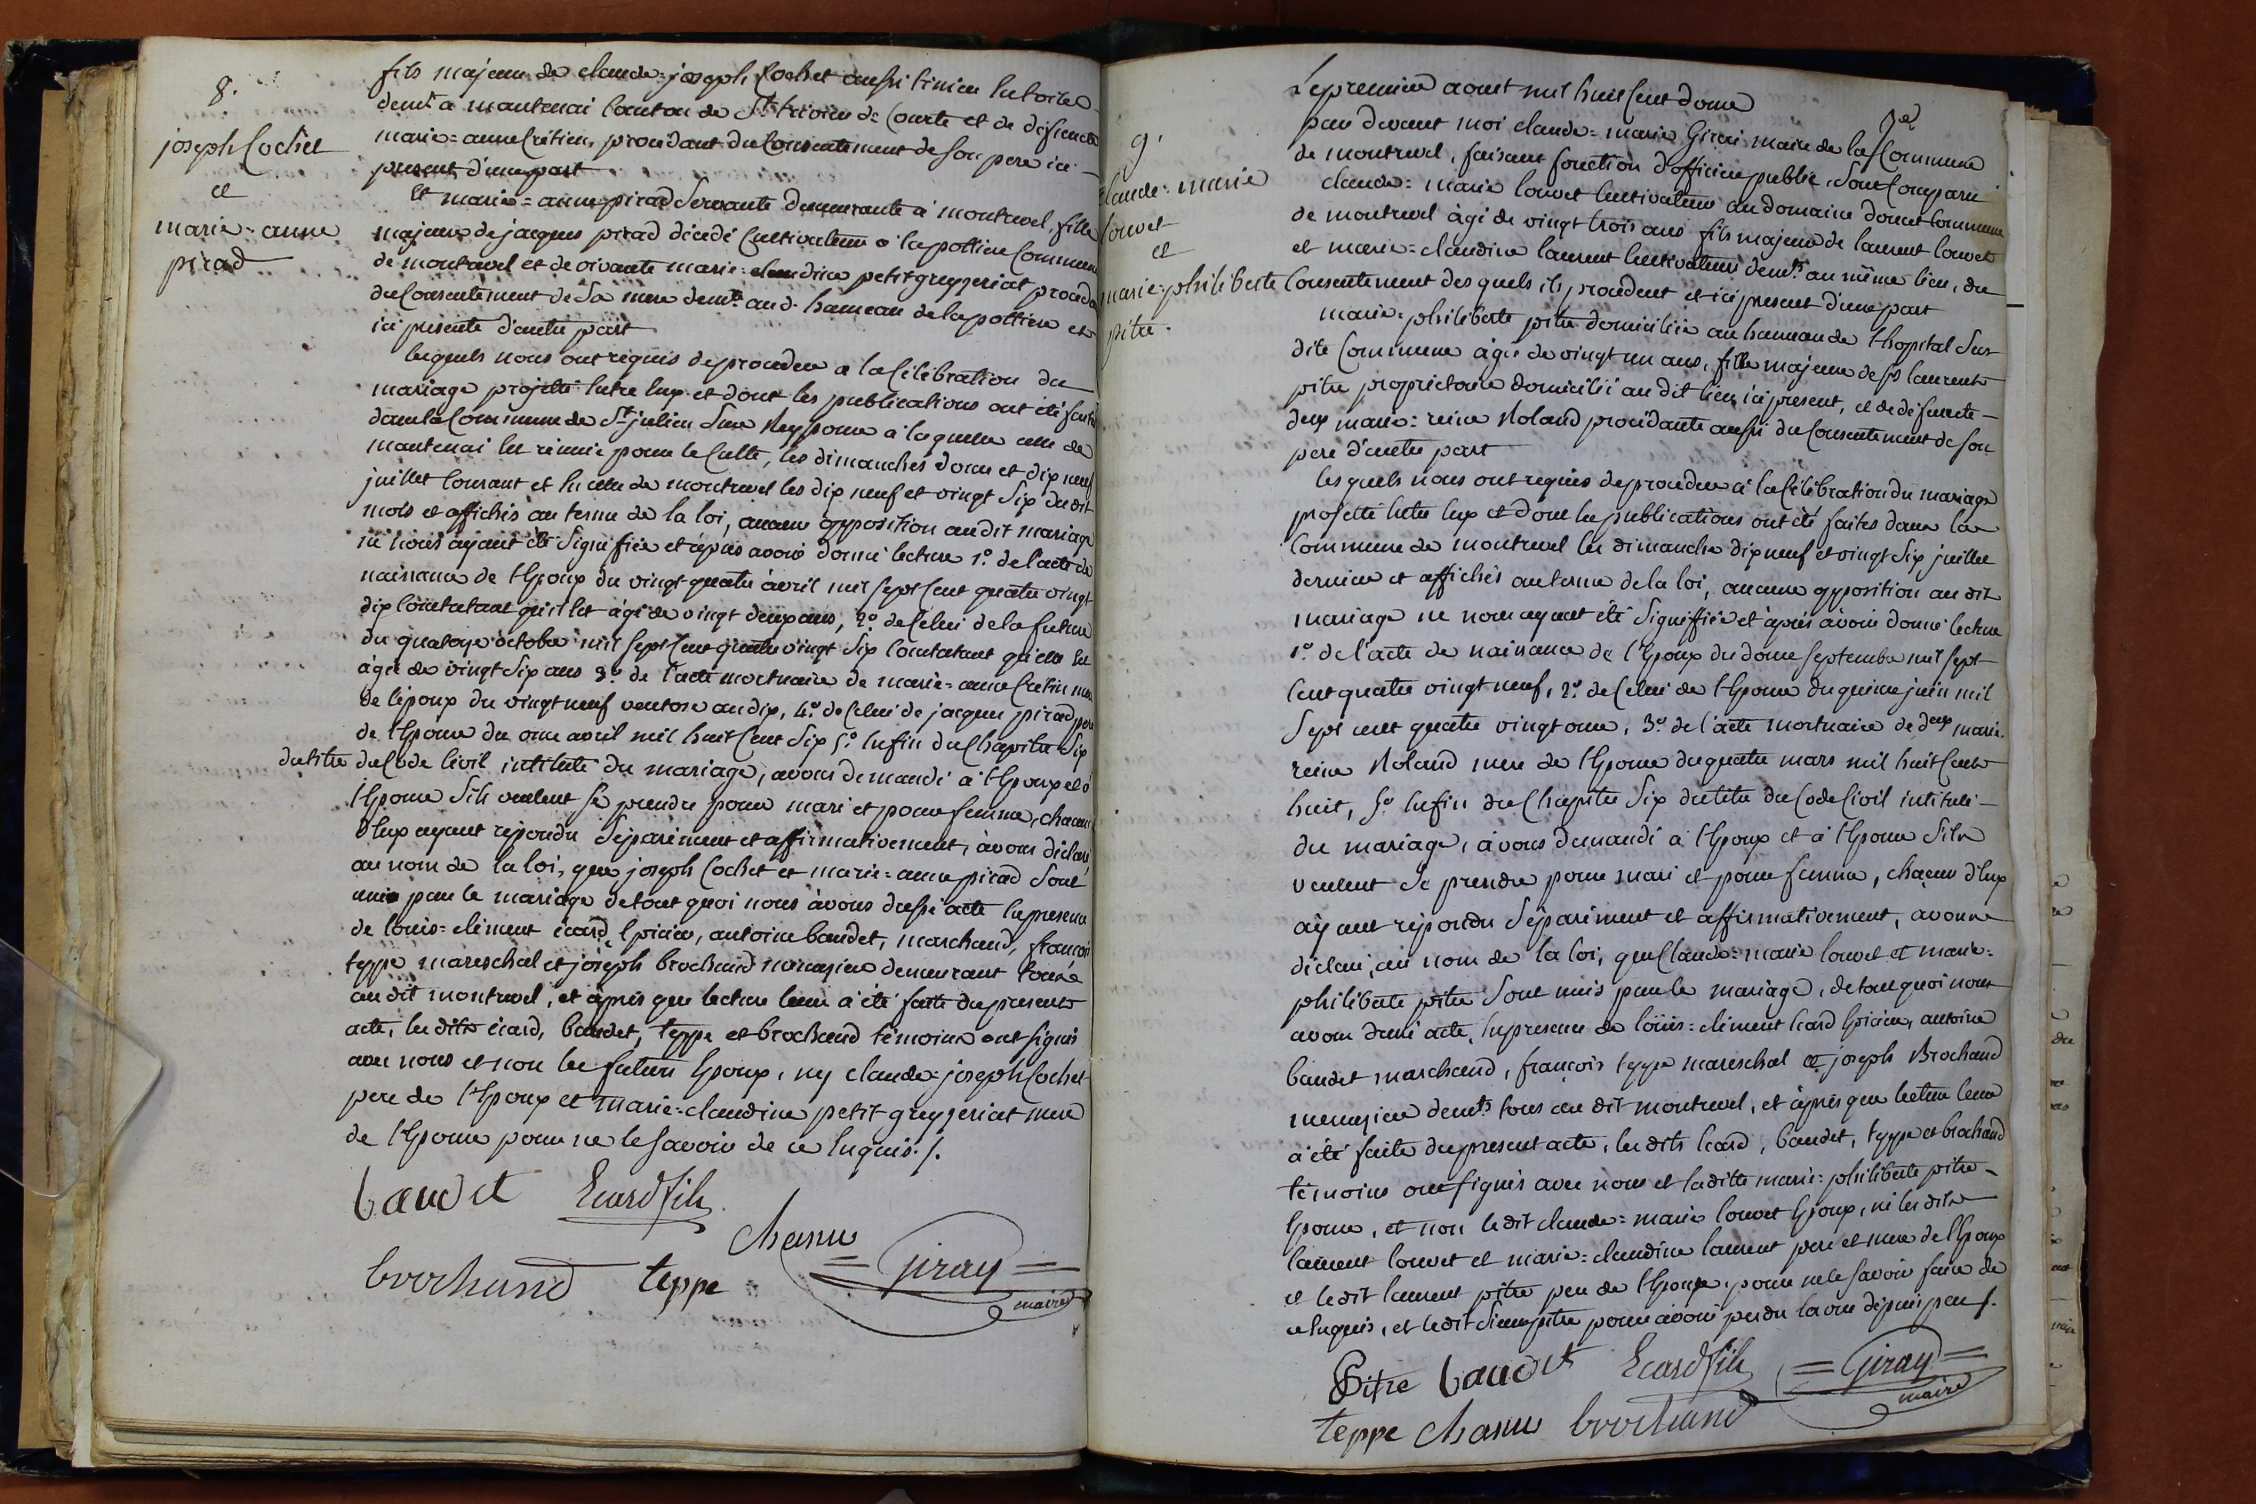 8.
joseph Cochet
et
marie=anne
pirad
fils majeur de claude=joseph Cochet aussi tixier en toile
demt. a mantenai canton de St. trivier de Courte et de defuncte
marie=anne Crétin, procédant du Consentement de son pere ici
present d'une part
Et marie=anne pirad Servante demeurante à montrevel, fille
majeure de jacques pirad décédé Cultivateur a la pottiere Commune
de montrevel et de vivante marie=claudine petit greygeriat procéda
du Consentement de Sa mere demte. aud. hameau de la pottiere et
ici présente d'autre part
lesquels nous ont requis de proceder a la Célébration du
mariage projetté entre eux et dont les publications ont été faites
dans la Commune de St. julien Sur Reyssouze à laquelle celle de
mantenai est réunie pour le Culte, les dimanches douze et dix neuf
juillet Courant et en celle de montrevel les dix neuf et vingt Six du dit
mois et affichés au terme de la loi, aucune opposition au dit mariage
ne nous ayant été Signifiée et àprès avoir donné lecture 1°. de l'acte de
naissance de l'Epoux du vingt quatre àvril mil sept Cent quatre vingt
dix Constatant qu'il Est âgé de vingt deux ans, 2°. de Celui de la future
du quatorze octobre mil Sept Cent quatre vingt Six Constatant qu'elle Est
âgée de vingt Six ans 3°. de l'acte mortuaire de marie=anne Cretin mere
de l'époux du vingt neuf ventose an dix, 4°. de Celui de jacques pirad pere
de l'Epouse du onze avril mil huit Cent Six 5°. Enfin du Chapitre Six
du titre du Code Civil intitulé du mariage, avons demandé à l'Epoux et à
l'Epouse S'ils veulent Se prendre pour mari et pour femme, chacun
d'Eux ayant répondu Séparément et affirmativement, àvons déclaré
au nom de la loi, que joseph Cochet et marie=anne pirad Sont
unis par le mariage de tout quoi nous àvons dressé acte En presence
de louis=clément écard Epicier, antoine baudet, marchand, françois
teppe mareschal et joseph brochand menuysier demeurant tous
au dit montrevel, et àprès que lecture leur à été faite du present
acte, les dits écard, baudet, teppe et brochand témoins ont signés
avec nous et non les futurs Epoux, ny claude=joseph Cochet
pere de l'Epoux et marie=claudine petit greygeriat mere
de l'Epouse pour ne le Savoir de ce Enquis ./.
baudet Ecard fils
Chanu
brochand teppe Giray
maire
9.
claude=marie
louvet
et
marie=philiberte
pitre.
Le premier aoust mil huit Cent douze
par devant moi claude=marie Girai maire de la Commune
de montrevel, faisant fonction d'officier public, Sont Comparu
claude=marie louvet Cultivateur au domaine doucet Commune
de montrevel âgé de vingt trois ans fils majeur de laurent louvet
et marie=claudine laurent Cultivateurs demts. au même lieu, du
Consentement des quels ils procedent et ici present d'une part
marie=philiberte pitre domiciliée au hameau de l'hopital Sus
dite Commune âgée de vingt un ans, fille majeure de Sr. laurent
pitre proprietaire domicilié au dit lieu ici present, et de défuncte
deux marie=reine Roland procédante aussi du Consentement de Son
pere d'autre part
lesquels nous ont requis de proceder à la Célébration du mariage
projetté Entre Eux et dont les publications ont été faites dans la
Commune de montrevel les dimanches dix neuf et vingt Six juillet
dernier et affichés au terme de la loi, aucune opposition au dit
mariage ne nous ayant été Signiffiée et àprès àvoir donné lecture
1°. de l'acte de naissance de l'Epoux du douze Septembre mil Sept
Cent quatre vingt neuf, 2°. de Celui de l'Epouse du quinze juin mil
Sept cent quatre vingt onze, 3°. de l'acte mortuaire de deux marie=
reine Roland mere de l'Epouse du quatre mars mil huit Cent
huit, 5°. Enfin du Chapitre Six du titre du Code Civil intitulé
du mariage, àvons demandé à l'Epoux et à l'Epouse S'ils
veulent Se prendre pour mari et pour femme, chacun d'Eux
ayant répondu Séparément et affirmativement, avons
déclaré, au nom de la loi, que Claude=marie louvet et marie=
philiberte pitre Sont unis par le mariage, de tout quoi nous
avons dressé acte, En presence de loüis=clément Ecard Epicier, antoine
baudet marchand, françois teppe mareschal et joseph Brochand
menuysier demts. tous au dit montrevel, et àprès que lecture leur
a été faite du present acte, les dits Ecard, baudet, teppe et brochand
témoins ont signés avec nous et la ditte marie=philiberte pitre
Epouse, et non le dit claude=marie louvet Epoux, ni les dits
laurent louvet et marie=claudine laurent pere et mere de l'Epoux
et le dit laurent pitre pere de l'Epouse pour ne le Savoir faire de
ce Enquis, et le dit Sieur pitre pour avoir perdu la vue depuis peu ./.
Pitre baudet Ecard fils Giray
maire
teppe Chanu brochand